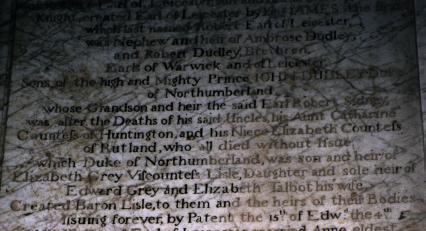 Earl of Leicester, son and
Knight, created Earl of Leicester by King JAMES the first
which last named Robert Earl of Leicester,
was Nephew and heir of Ambrose Dudley,
and Robert Dudley, Brethren,
Earls of Warwick and of Leicester
Sons of the high and Mighty Prince JOHN DUDLEY Duke
of Northumberland,
whose Grandson and heir the said Earl Robert Sidney,
was after the Deaths of his said Uncles, his Aunt Catharine
Countess of Huntington, and his Niece Elizabeth Countess
of Rutland, who all died without Issue,
which Duke of Northumberland, was son and heir of
Elizabeth Grey Viscountess Lisle, Daughter and sole heir of
Edward Grey and Elizabeth Talbot his wife
Created Baron Lisle, to them and the heirs of their Bodies
issuing forever, by Patent the 15th of Edw. the 4th
Anne eldest